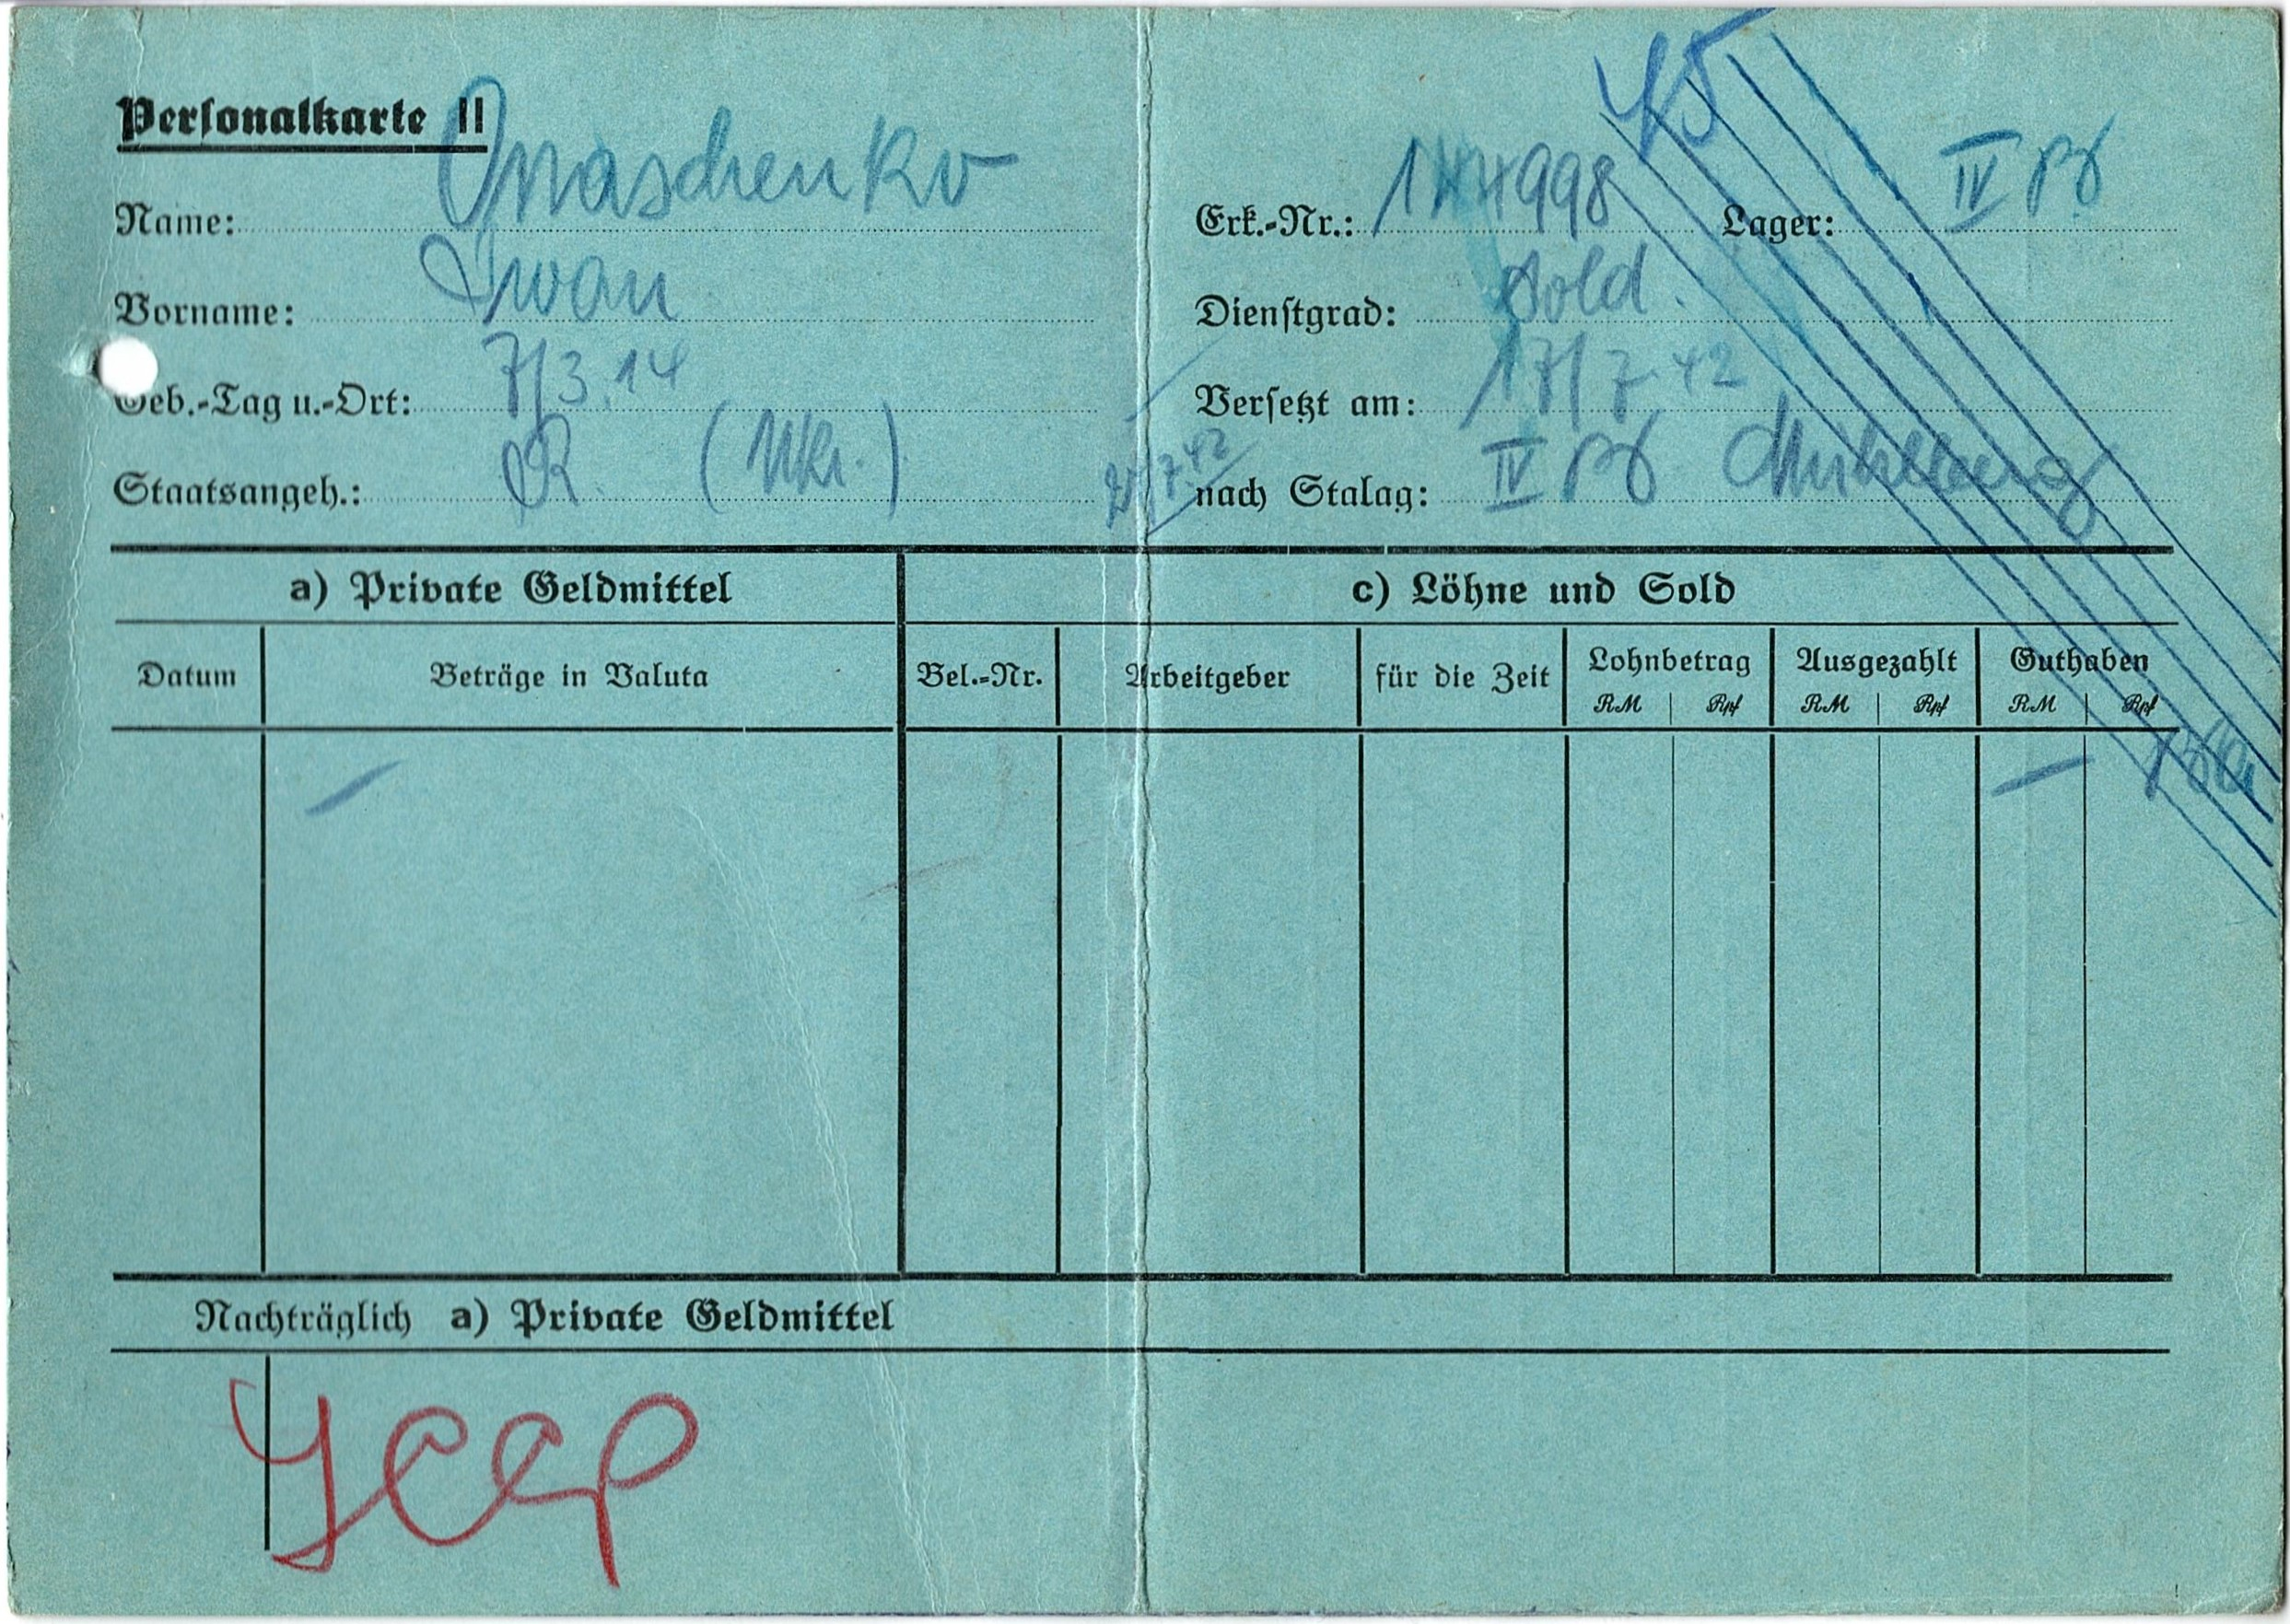 Personalkarte II
45
Name: Onaschenko
Erk.-Nr.: 144998 Lager: IV B
Vorname: Iwan
Dienstgrad: Sold.
Geb.-Tag u.-Ort: 7/3.14
Versetzt am: 17/7.42
Staatsangeh.: R. (Ukr.)
7.42
nach Stalag: IV B Mühlberg
a) Private Geldmittel
c) Löhne und Sold
Datum Beträge in Valuta
Bel.-Nr. Arbeitgeber für die Zeit Lohnbetrag Ausgezahlt Guthaben
RM Rpf RM Rpf RM Rpf
— —
Nachträglich a) Private Geldmittel
УССР